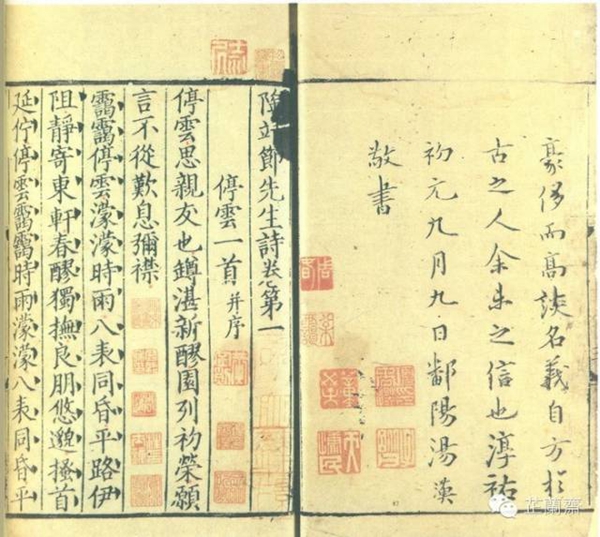 豪侈而高談名義自方於
古之人余未之信也淳祐
初元九月九日鄱陽湯漢
敬書
陶靖節先生詩卷第一
停雲一首 并序
停雲思親友也罇湛新醪園列初榮願
言不從歎息彌襟
靄靄停雲濛濛時雨八表同昏平路伊
阻靜寄東軒春醪獨撫良朋悠邈搔首
延佇停雲靄靄時雨濛濛八表同昏平
芷蘭齋